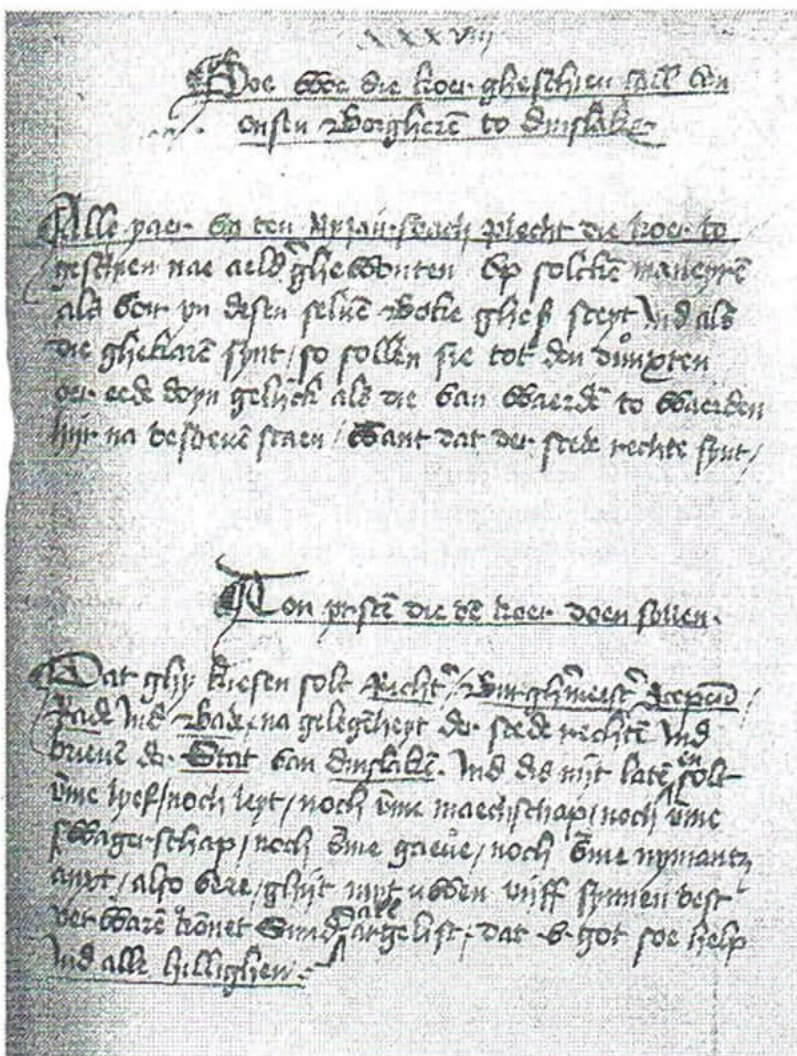 XXXVIII
Hoe Woe die koer ghescyen sall van
onsen Borgherē to dinslakē
Alle yaer op ten Nyjairsdach plecht die koer to
gescyen nae alder ghewonten Op solckē maneyrē
als voir yn desen seluē Boke ghescr steyt Ind als
die ghekarē synt / so sollen sie tot den
oer eede doyn gelyck als die van waerdē to waerden
hijr na bescreuē staen / Want dat der stede rechte synt /
Ton yrstē die dē koer doen sollen
Dat ghy kiesen solt Richt' / Burghmeist' Scepenē /
Rade Ind Bade na gelegēheyt der stede rechtē Ind
brieue der Stat van dinslakē. Ind dis nyt latē en solt
vme lyef / noch leyt / noch vme maechschap / noch vme
swagerschap / noch vme gaeue / noch vme nymantz
/ also vere / ghijt myt uwen vijff synnen best
verwarē kōnet Sund alle argelist / dat v got soe help
Ind alle hillighen